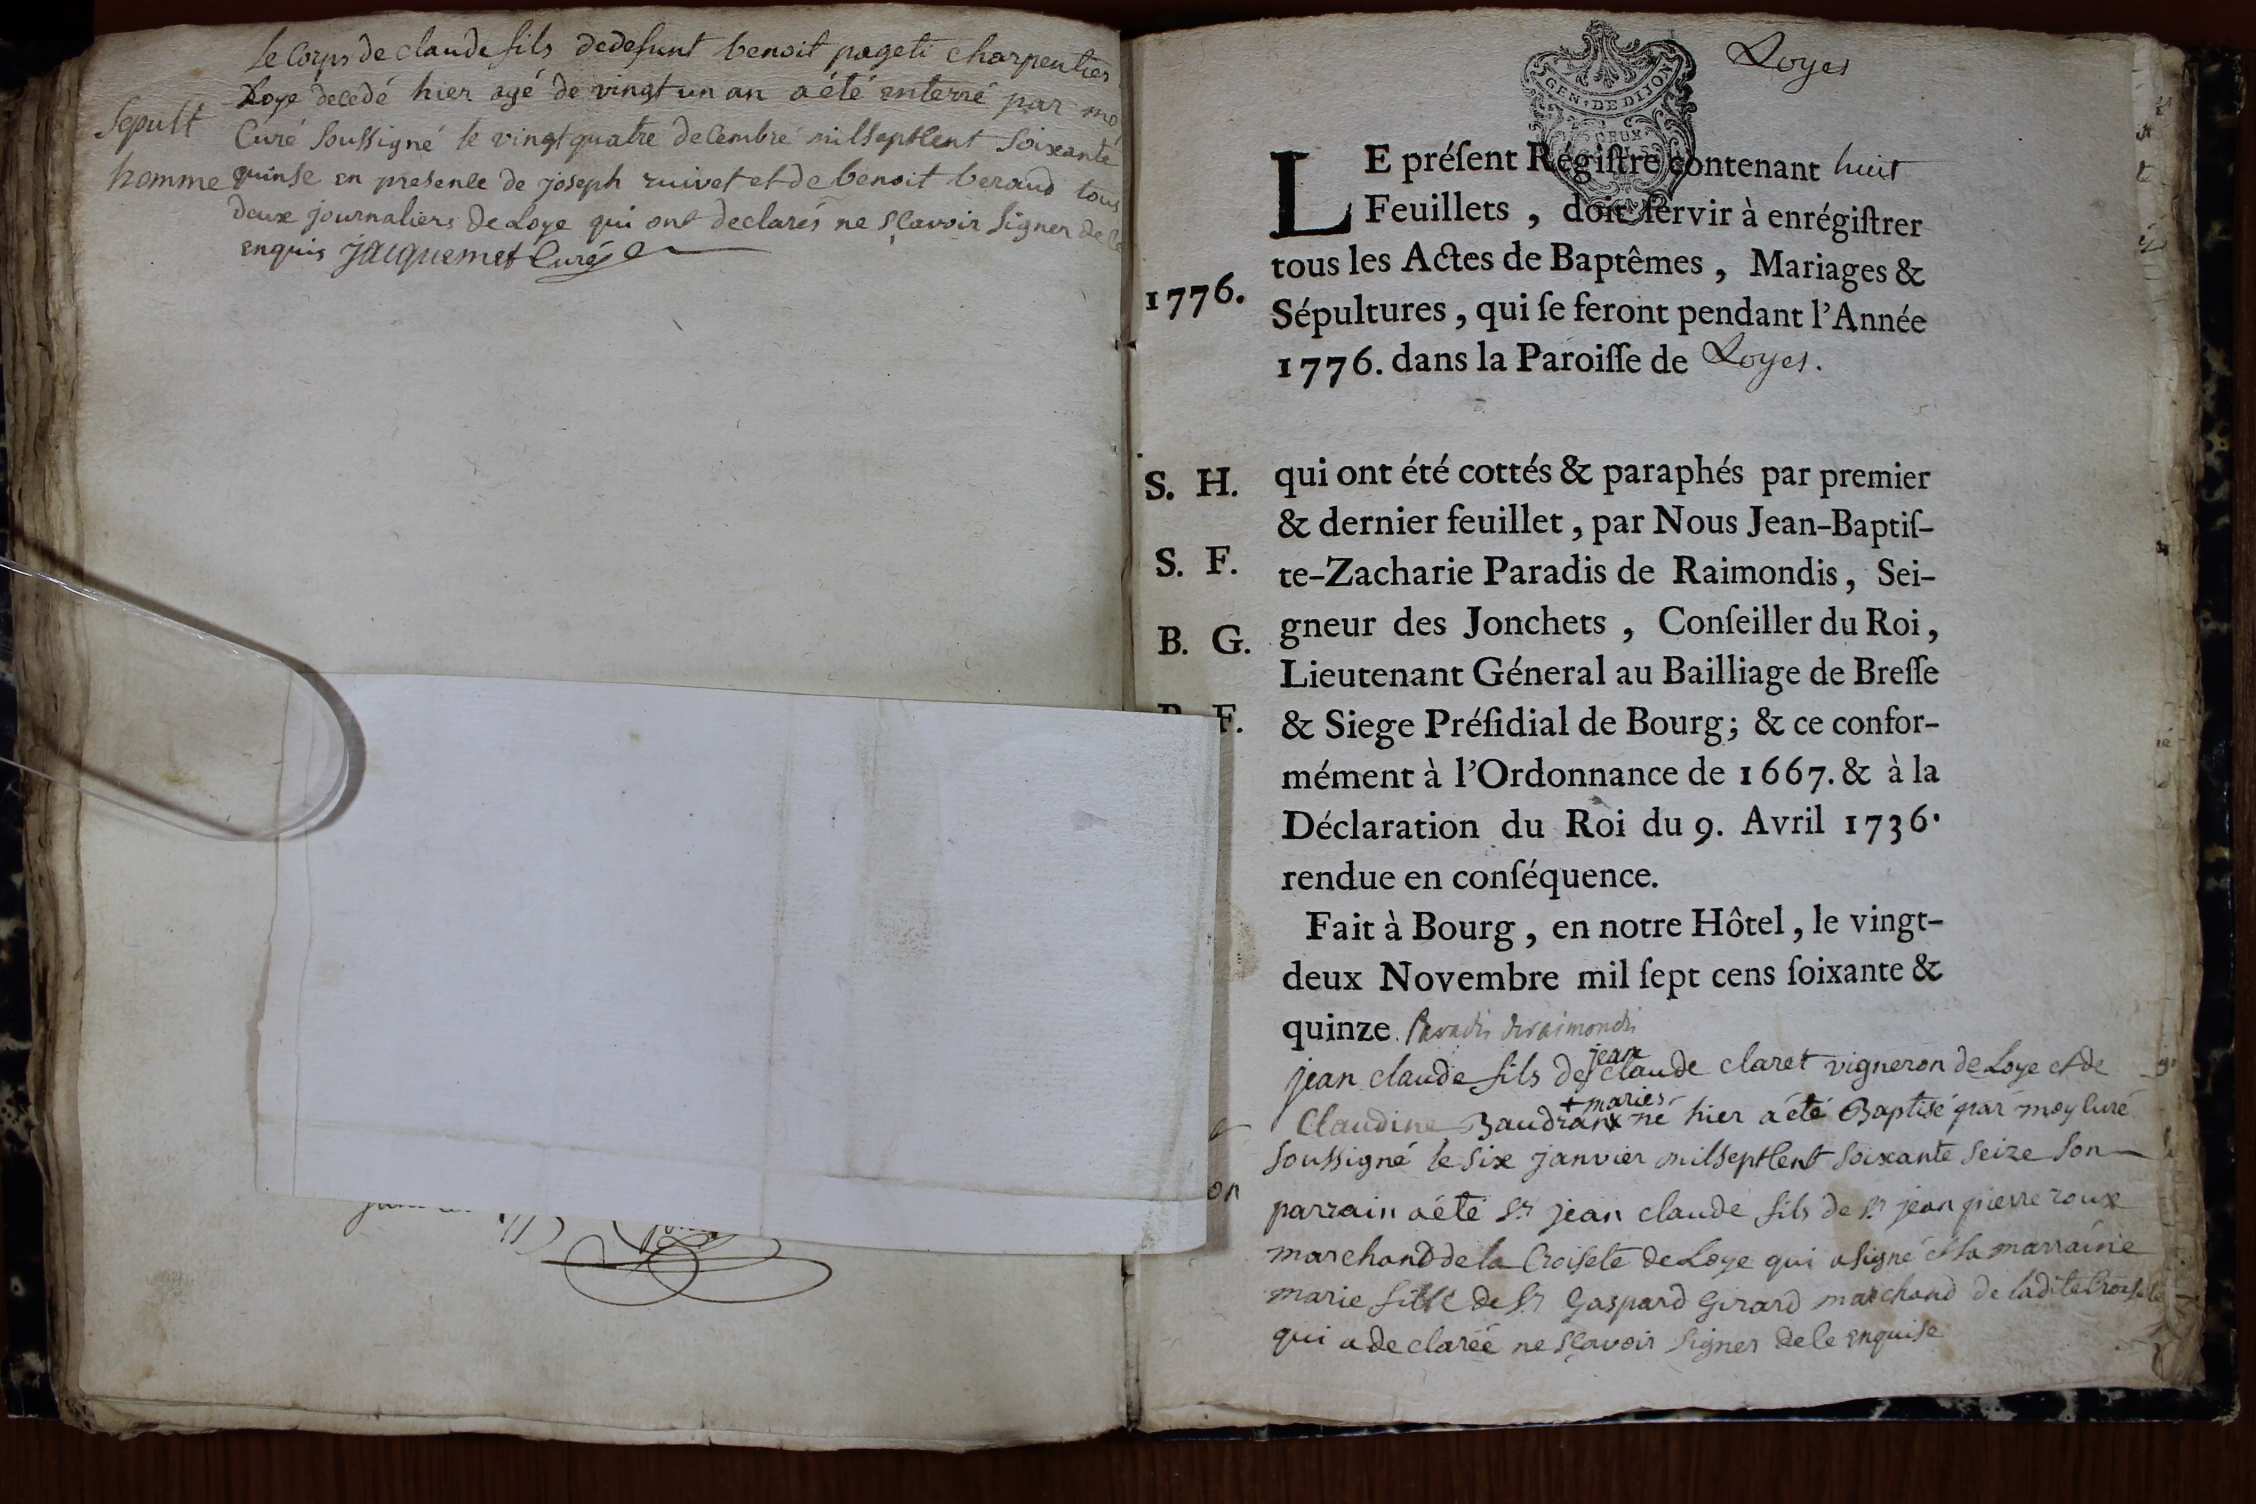 le Corps de claude fils dedefunt benoit pageti charpentier
Loye decedé hier agé de vingt un an a été enterré par mo
Sepult
Curé soussigné le vingt quatre decembre mil sept cent soixante
homme
quinse en presence de joseph ruivet et de benoit beraud tous
deux journaliers de Loye qui ont declarés ne sçavoir signer de ce
enquis jacquemet Curé
Loyes
GEN. DE DIJON
DEUX
LE préſent Régiſtre contenant huit
Feuillets , doit ſervir à enrégiſtrer
tous les Actes de Baptêmes , Mariages &
1776.
Sépultures , qui ſe feront pendant l'Année
1776. dans la Paroiſſe de Loyes.
S. H.
qui ont été cottés & paraphés par premier
& dernier feuillet , par Nous Jean-Baptiſ-
S. F.
te-Zacharie Paradis de Raimondis , Sei-
B. G.
gneur des Jonchets , Conſeiller du Roi ,
Lieutenant Géneral au Bailliage de Breſſe
F.
& Siege Préſidial de Bourg ; & ce confor-
mément à l'Ordonnance de 1667. & à la
Déclaration du Roi du 9. Avril 1736.
rendue en conſéquence.
Fait à Bourg , en notre Hôtel , le vingt-
deux Novembre mil ſept cens ſoixante &
quinze. Paradis deraimondis
jean
jean claude fils de claude claret vigneron de Loye et de
+ mariés
Claudine Baudran x né hier a été Baptisé par moy curé
soussigné le six janvier mil sept cent soixante seize son
parrain a été Sr jean claude fils de Sr jean pierre roux
marchand de la Croisete de Loye qui a signé et la marraine
marie fille de Sr Gaspard Girard marchand de ladite Croisete
qui a declarée ne sçavoir signer de ce enquise